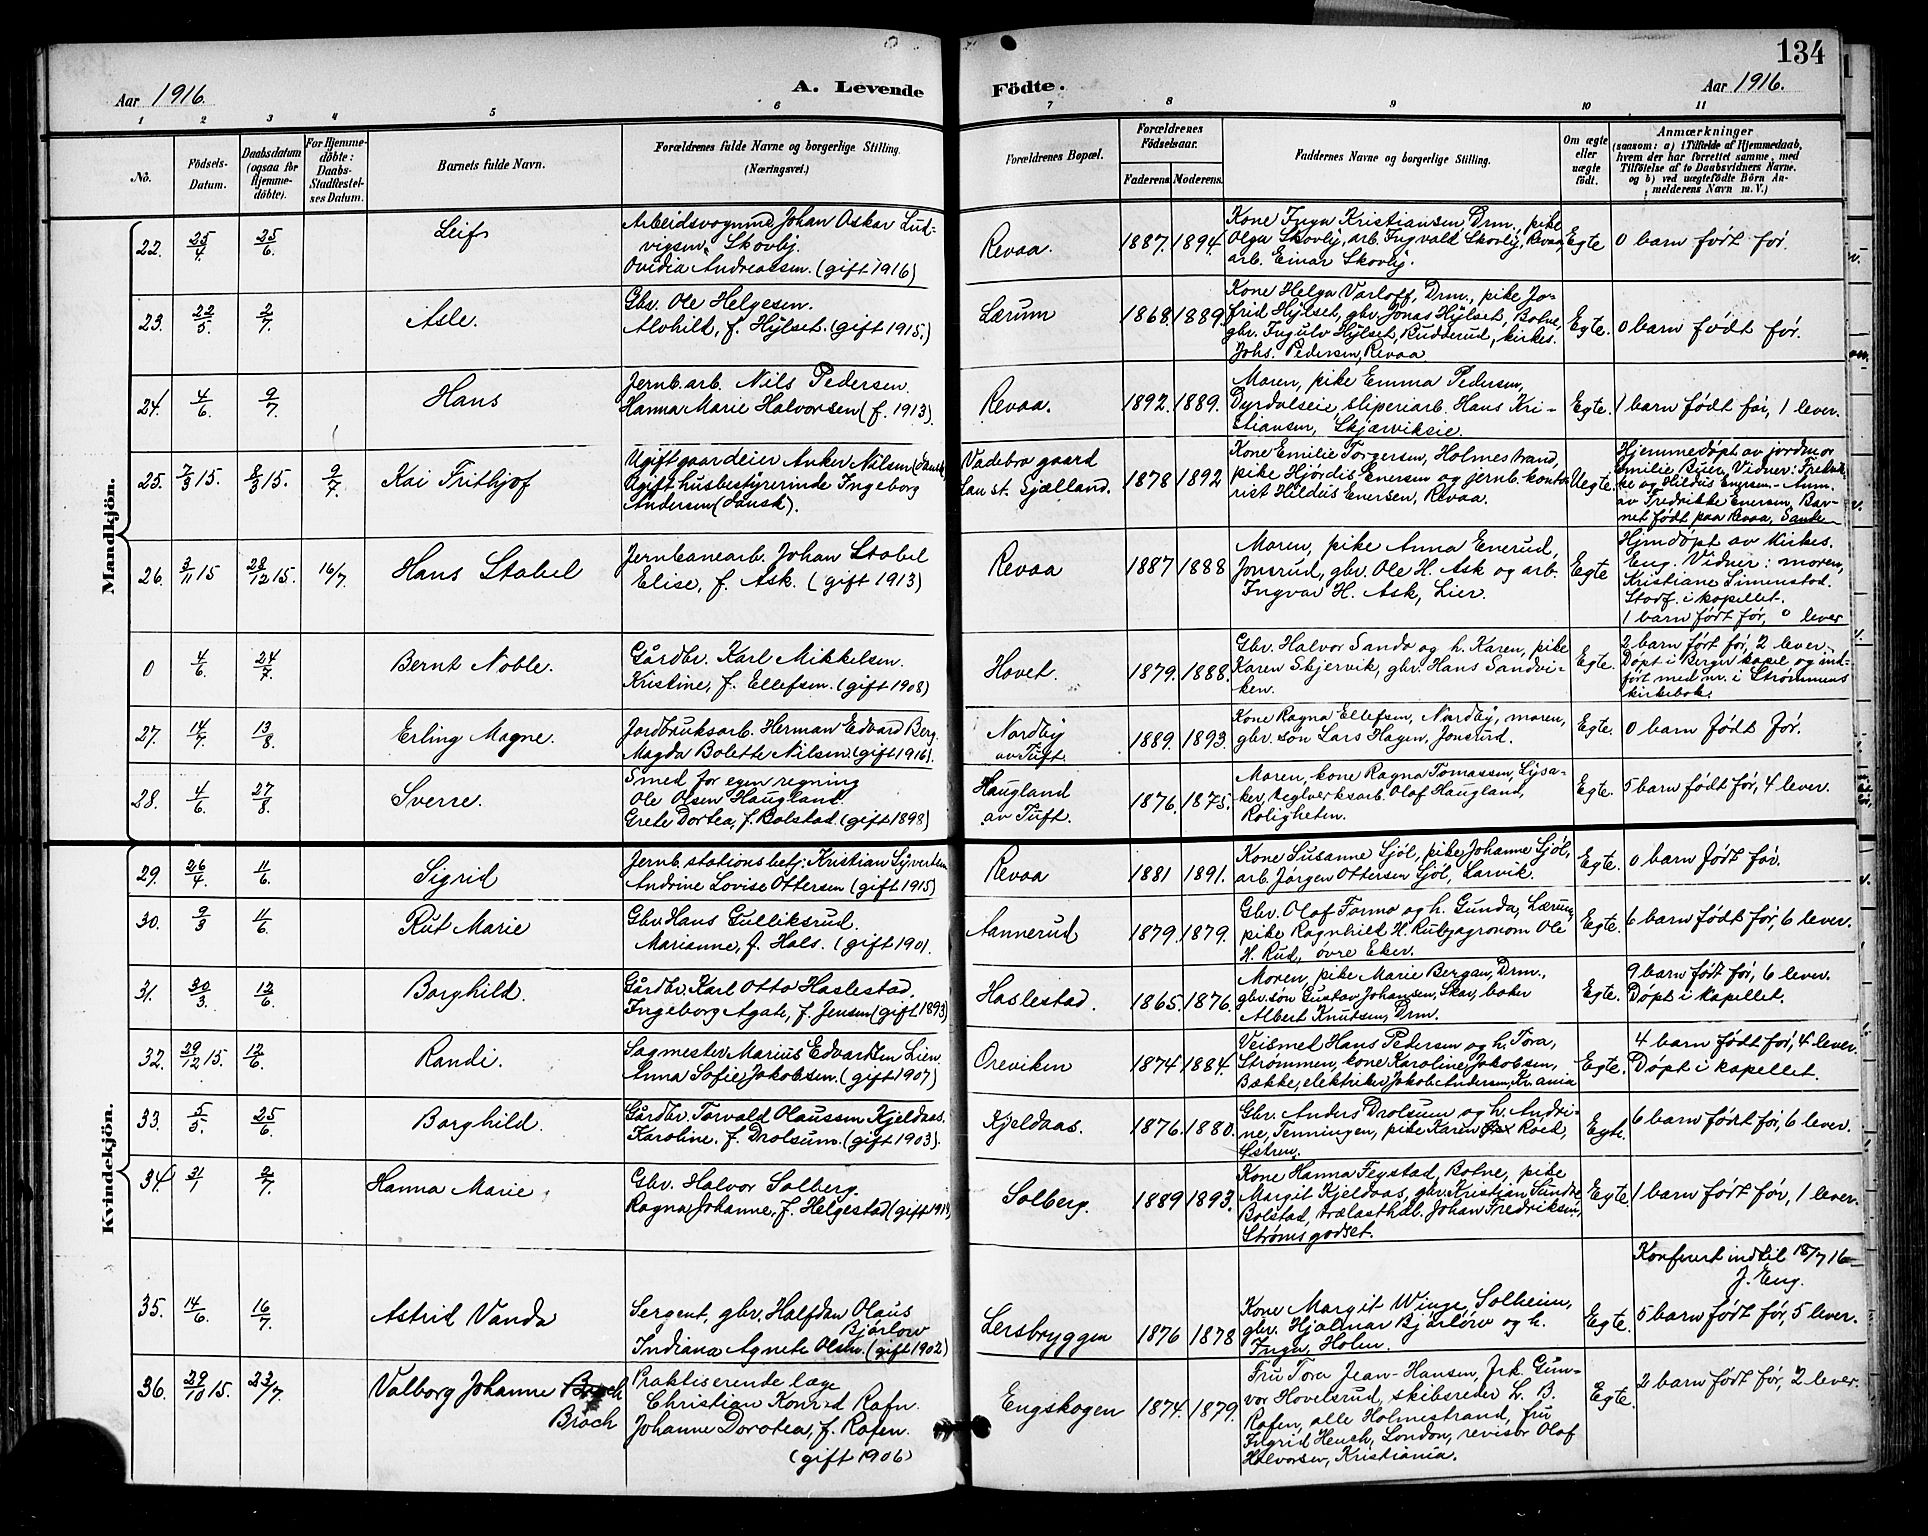 134
Aar 1916.
A. Levende Födte.
Aar 1916.
1 2 3 4 5 6 7 8 9 10 11
No.
Födsels-Datum.
Daabsdatum (ogsaa for Hjemme-döbte).
For Hjemme-döbte: Daabs-Stadfæstel-ses Datum.
Barnets fulde Navn.
Forældrenes fulde Navne og borgerlige Stilling.
(Næringsvei.)
Forældrenes Bopæl.
Forældrenes Födselsaar.
Faderens. Moderens.
Faddernes Navne og borgerlige Stilling.
Om ægte eller uægte födt.
Anmærkninger
(saasom: a) i Tilfælde af Hjemmedaab, hvem der har forrettet samme, med Tilföielse af to Daabsvidners Navne, og b) ved uægtefödte Börn Anmelderens Navn m. V.)
Mandkjön.
22. 25/4 25/6 Leif
Arbeidsvognmd Johan Oskar Lud-
vigsen Skovly.
Ovidia Andreassen. (gift 1916)
Revaa. 1887. 1894.
Kone Inga Kristiansen, Drm., pike
Olga Skovly, arb. Ingvald Skovly, Revaa,
arb. Einar Skovly.
Egte 0 barn født før.
23. 22/5 2/7 Asle.
Gbr. Ole Helgesen.
Alvhild, f. Hylset. (gift 1915.)
Lærum 1868 1889.
Kone Helga Varloff, Drm., pike Jo-
frid Hylset, gbr. Jonas Hylset, Botne,
gbr. Ingulv Hylset, Rudderud, kirkes.
Johs. Pedersen, Revaa
Egte. 0 barn født før.
24. 4/6 9/7 Hans
Jernb.arb. Nils Pedersen.
Hanna Marie Halvorsen (f. 1913).
Revaa. 1892. 1889.
Moren, pike Emma Pedersen,
Dyrdalseie, sliperiarb. Hans Kri-
stiansen, Skjærviksie.
Egte. 1 barn født før, 1 lever.
25. 7/3 15. 8/3 15. 9/7 Kai Frithjof
Ugift gaardeier Anker Nilsen (dansk)
Ugift husbestyrerinde Ingeborg
Andersen (dansk).
Vadebro gaard
Sjælland. 1878 1892
Kone Emilie Torgersen, Holmestrand,
pike Hjørdis Enersen og jernb. konto-
rist Hildus Enersen, Revaa.
Uegte.
Hjemmedøpt av jordmor
Emilie Buer. Vidner: Fredrik-
ke og Hildus Enersen. - Anm.
av Fredrikke Enersen, Bar-
net født paa Revaa, Sande
26. 3/11 15 28/12 15. 16/7. Hans Stabel
Jernbanearb. Johan Stabel
Elise, f. Ask. (gift 1913)
Revaa 1887 1888
Moren, pike Anna Enerud,
Jonsrud, gbr. Ole H. Ask og arb.
Ingvar H. Ask, Lier.
Egte
Hjmdøpt av kirkes.
Eng. Vidner: moren,
Kristiane Simenstad.
Stadf. i kapellet.
1 barn født før, 0 lever
0 4/6 24/7 Bernt Noble.
Gårdbr. Karl Mikkelsen.
Kristine, f. Ellefsen. (gift 1908)
Hovet. 1879. 1888.
Gbr. Halvor Sando og h. Karen, pike
Karen Skjervik, gbr. Hans Sandvi-
ken.
Egte.
2 barn født før, 2 lever.
Døpt i Berger kapel, og ind-
ført med nr. i Strømmens
kirkebok.
27. 14/7 13/8 Erling Magne.
Jordbruksarb. Herman Edvard Berg.
Magda Bolette Nilsen. (gift 1916).
Nordby
av Tuft. 1889. 1893.
Kone Ragna Ellefsen, Nordby, moren,
gbr. søn Lars Hagen, Jonsrud.
Egte. 0 barn født før.
28. 4/6 27/8 Sverre.
Smed for egen regning
Ole Olsen Haugland.
Grete Dortea, f. Bolstad. (gift 1898)
Haugland
av Tuft. 1876. 1875.
Moren, kone Ragna Tomassen, Lysa-
ker, teglverksarb. Olaf Haugland,
Roligheten.
Egte. 5 barn født før, 4 lever.
Kvindekjön.
29. 26/4 11/6 Sigrid
Jernb. stationsbetj. Kristian Syvertsen
Andrine Lovise Ottersen (gift 1915)
Revaa 1881 1891.
Kone Susanne Sjøl, pike Johanne Sjøl,
arb. Jørgen Ottersen Sjøl, Larvik.
Egte. 0 barn født før.
30. 9/3 11/6 Rut Marie
Gbr. Hans Gulliksrud.
Marianne, f. Hals. (gift 1901.
Aannerud 1879. 1879.
Gbr. Olaf Formo og h. Gunda, Lærum,
pike Ragnhild H. Rud, agronom Ole
H. Rud, øvre Eker.
Egte. 6 barn født før, 6 lever.
31. 30/3. 12/6 Borghild.
Gårdbr. Karl Otto Haslestad.
Ingeborg Agate, f. Jensen (gift 1893)
Haslestad. 1865. 1876.
Moren, pike Marie Bergan, Drm.,
gbr.søn Gustav Johansen, Skar, baker
Albert Knutsen, Drm.
Egte.
9 barn født før, 6 lever.
Døpt i kapellet.
32. 29/12 15. 12/6. Randi.
Sagmester Marius Edvardsen Lien
Anna Sofie Jakobsen. (gift 1907)
Oreviken 1874 1884.
Veismet Hans Pedersen og h. Tora,
Strømmen, kone Karoline Jakobsen,
Bække, elektriker Jakob Andersen, Kr.ania
Egte.
4 barn født før, 4 lever.
Døpt i kapellet.
33. 5/5. 25/6 Borghild.
Gårdbr. Torvald Olaussen Kjeldaas.
Karoline, f. Drolsum. (gift 1903).
Kjeldaas. 1876. 1880.
Gbr. Anders Drolsum og h. Andri-
ne, Tenningen, pike Karen Roed,
Østren.
Egte. 6 barn født før, 6 lever.
34. 31/1 2/7 Hanna Marie
Gbr. Halvor Solberg.
Ragna Johanne, f. Helgestad (gift
Solberg. 1889 1893.
Kone Hanna Feystad, Botne, pike
Margit Kjeldaas, gbr. Kristian Sundbe,
Bolstad, trælasthdl. Johan Fredriksen,
Strømsgodset.
Egte. 1 barn født før, 1 lever.
Konferert indtil 18/7 16
J. Eng.
35. 14/6. 16/7. Astrid Vanda
Sergent, gbr. Halfdan Olaus
Bjørløw
Indiana Agnete Olsen. (gift 1902)
Lersbryggen 1876 1878
Kone Margit Winge, Solheim,
gbr. Hjalmar Bjørløw og h.
Inga, Holm.
Egte. 5 barn født før, 5 lever.
36. 29/10 15. 23/7. Valborg Johanne
Broch
Praktiserende læge
Christian Konrad Rafn.
Johanne Dorotea, f. Rafen.
(gift 1906)
Engskogen 1874. 1879.
Fru Tora Jean-Hansen, frk. Gun-
vor Hovelsrud, skibsreder L. B.
Rafen, alle Holmestrand, fru
Ingrid Heuch, London, revisor Olaf
Halvorsen, Kristiania.
Egte. 2 barn født før, 2 lever.